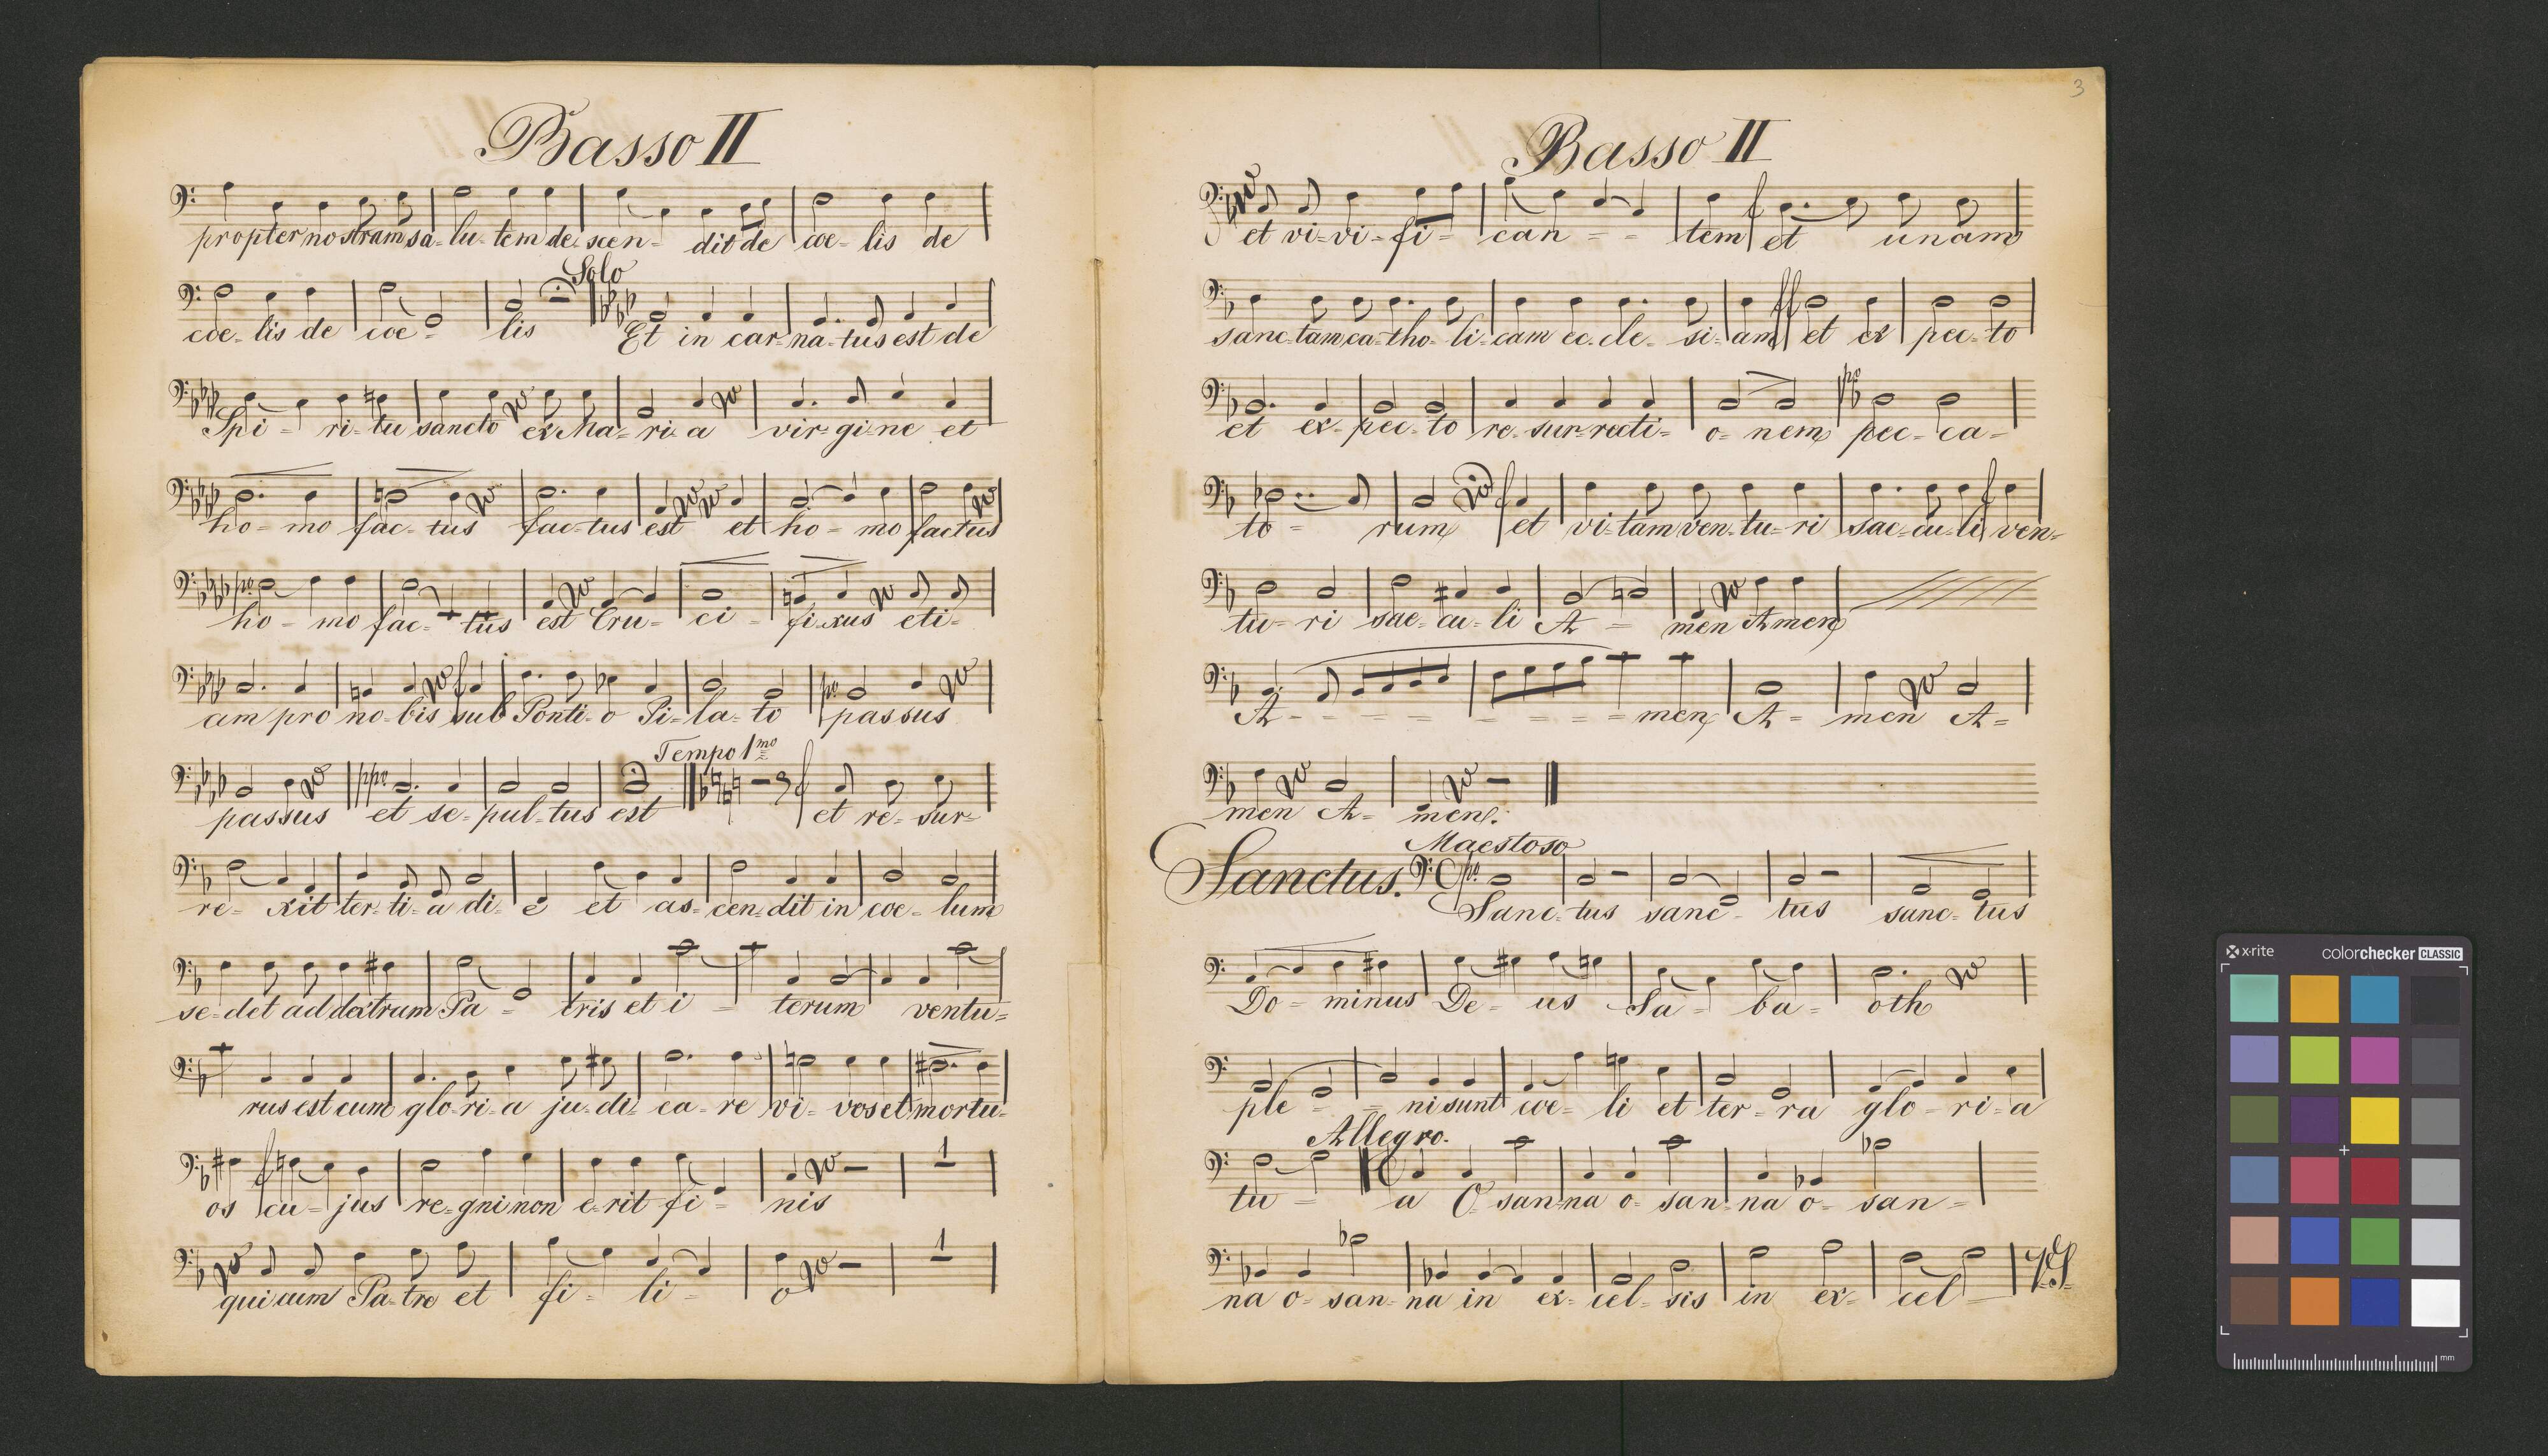 Basso II
propter nostram sa-lu-tem de-scen-dit de coe-lis de
Solo
coe-lis de coe-lis Et in car-na-tus est de
Spi-ri-tu sancto ex Ma-ri-a vir-gi-ne et
ho-mo fac-tus fac-tus est et ho-mo factus
po
ho-mo fac-tus est Cru-ci-fi-xus eti-
f po
am pro no-bis sub Ponti-o Pi-la-to passus
Tempo 1mo
ppo f
passus et se-pul-tus est et re-sur-
re-xit ter-ti-a di-e et as-cen-dit in coe-lum
se-det ad dextram Pa-tris et i-terum ventu-
rus est cum glo-ri-a ju-di-ca-re vi-vos et mortu-
f 1
os cu-jus re-gni non e-rit fi-nis
1
qui cum Pa-tre et fi-li-o
3
Basso II
f
et vi-vi-fi-can--tem et unam
ff
sanc-tam ca-tho-li-cam ec-cle-si-am et ex pec-to
po
et ex-pec-to re-sur-recti-o-nem pec-ca-
f f
to-rum et vi-tam ven-tu-ri sae-cu-li ven-
tu-ri sae-cu-li A-men Amen
A--------men A-men A-
men A-men.
Maestoso
Sanctus. C po
Sanc-tus sanc-tus sanc-tus
Do-minus De-us Sa-ba-oth
ple--ni sunt coe-li et ter-ra glo-ri-a
Allegro.
tu-a O-san-na o-san-na o-san-
na o-san-na in ex-cel-sis in ex-cel- VS
x-rite colorchecker CLASSIC
mm